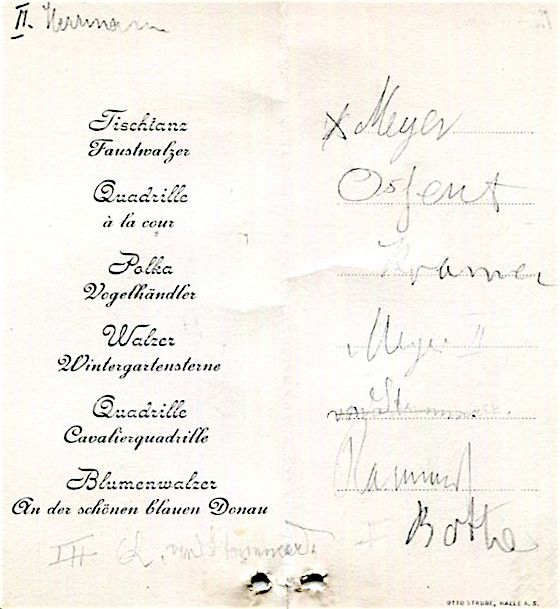 II. Herrmann
Tischtanz
Faustwalzer
Meyer
Quadrille
à la cour
Osfent
Polka
Vogelhändler
Kramer
Walzer
Wintergartensterne
Meyer II
Quadrille
Cavalierquadrille
von
Blumenwalzer
An der schönen blauen Donau
I Bothe
OTTO STRUBE, HALLE A. S.